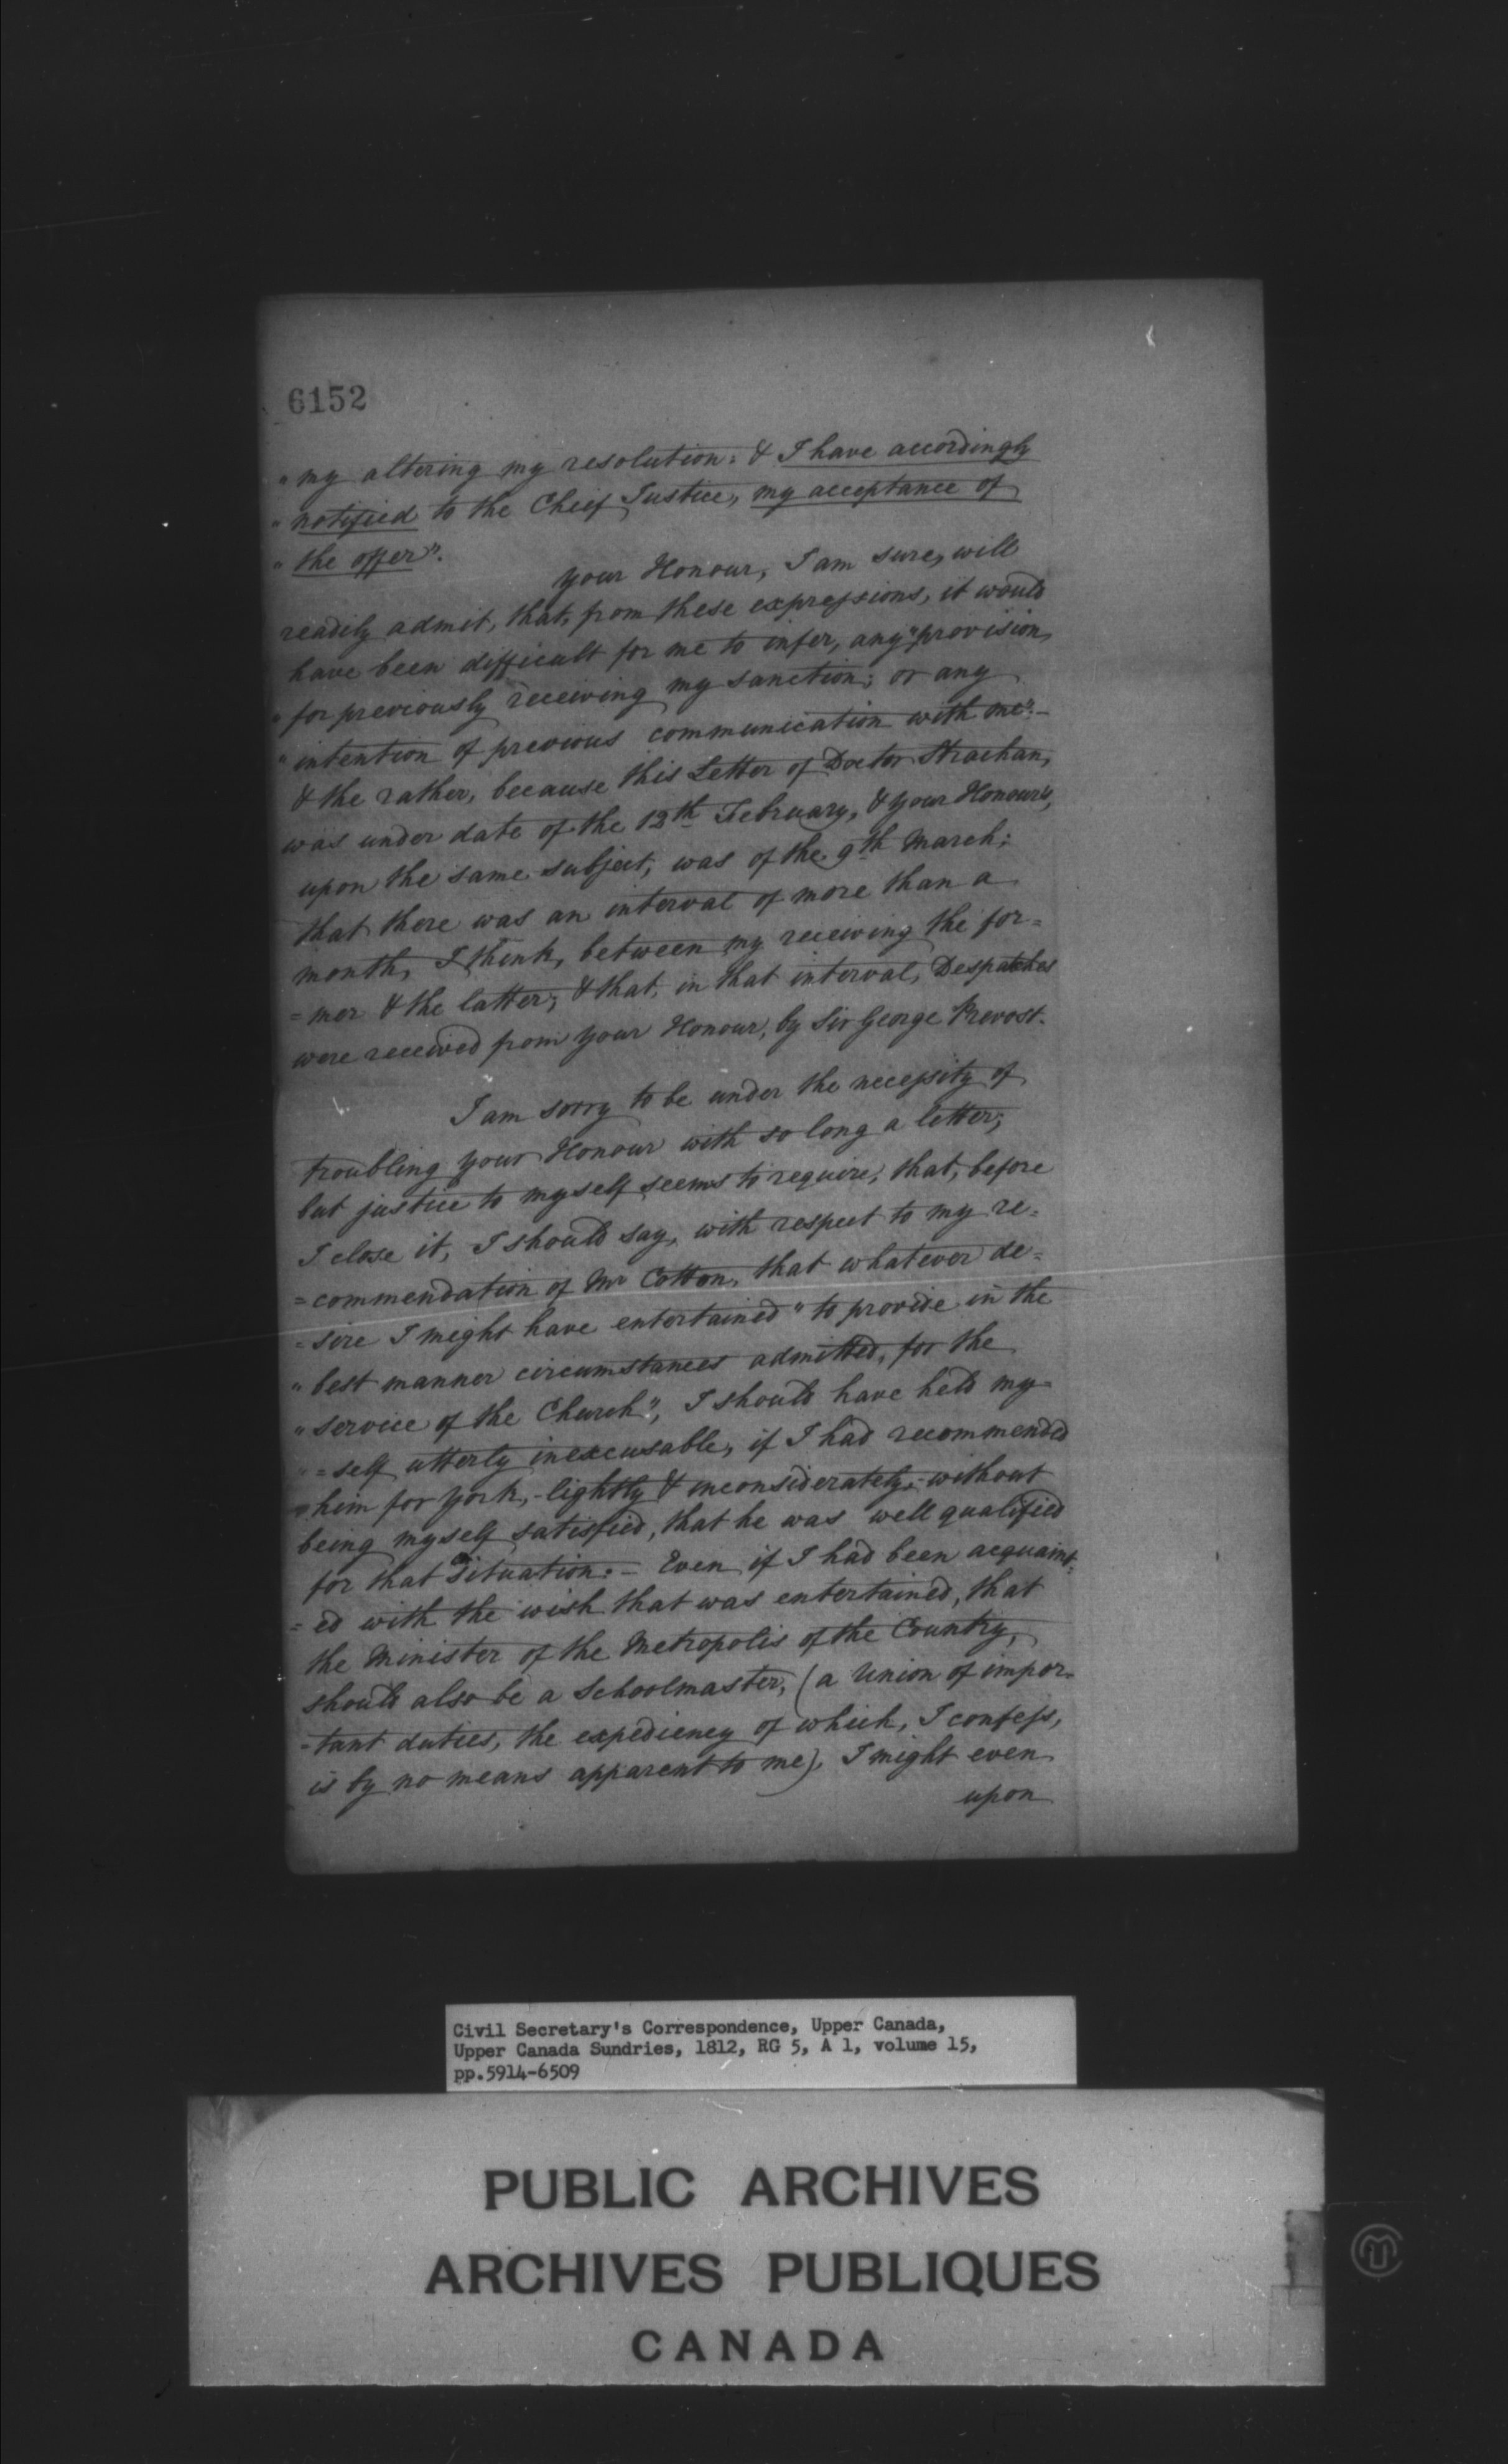 6152
" my altering my resolution: & I have accordingly
" notified to the Chief Justice, my acceptance of
" the offer".
Your Honour, I am sure, will
readily admit, that, from these expressions, it would
have been difficult for me to infer, any "provision
" for previously receiving my sanction; or any
" intention of previous communication with me":-
& the rather, because this Letter of Doctor Strachan,
was under date of the 12th February, & your Honour's,
upon the same subject, was of the 9th March;
that there was an interval of more than a
month, I think, between my receiving the for=
=mer & the latter; & that, in that interval, Despatches
were received from your Honour, by Sir George Prevost.
I am sorry to be under the necessity of
troubling your Honour with so long a letter;
but justice to myself seems to require, that, before
I close it, I should say, with respect to my re=
=commendation of Mr Cotton, that whatever de=
=sire I might have entertained "to provide in the
" best manner circumstances admitted, for the
" service of the Church", I should have held my=
=self utterly inexcusable, if I had recommended
him for York, - lightly & inconsiderately, - without
being myself satisfied, that he was well qualified
for that Situation:- Even if I had been acquaint=
=ed with the wish that was entertained, that
the Minister of the Metropolis of the Country,
should also be a Schoolmaster, (a Union of impor-
-tant duties, the expediency of which, I confess,
is by no means apparent to me), I might even
upon
Civil Secretary's Correspondence, Upper Canada,
Upper Canada Sundries, 1812, RG 5, A 1, volume 15,
pp.5914-6509
PUBLIC ARCHIVES
ARCHIVES PUBLIQUES
CANADA